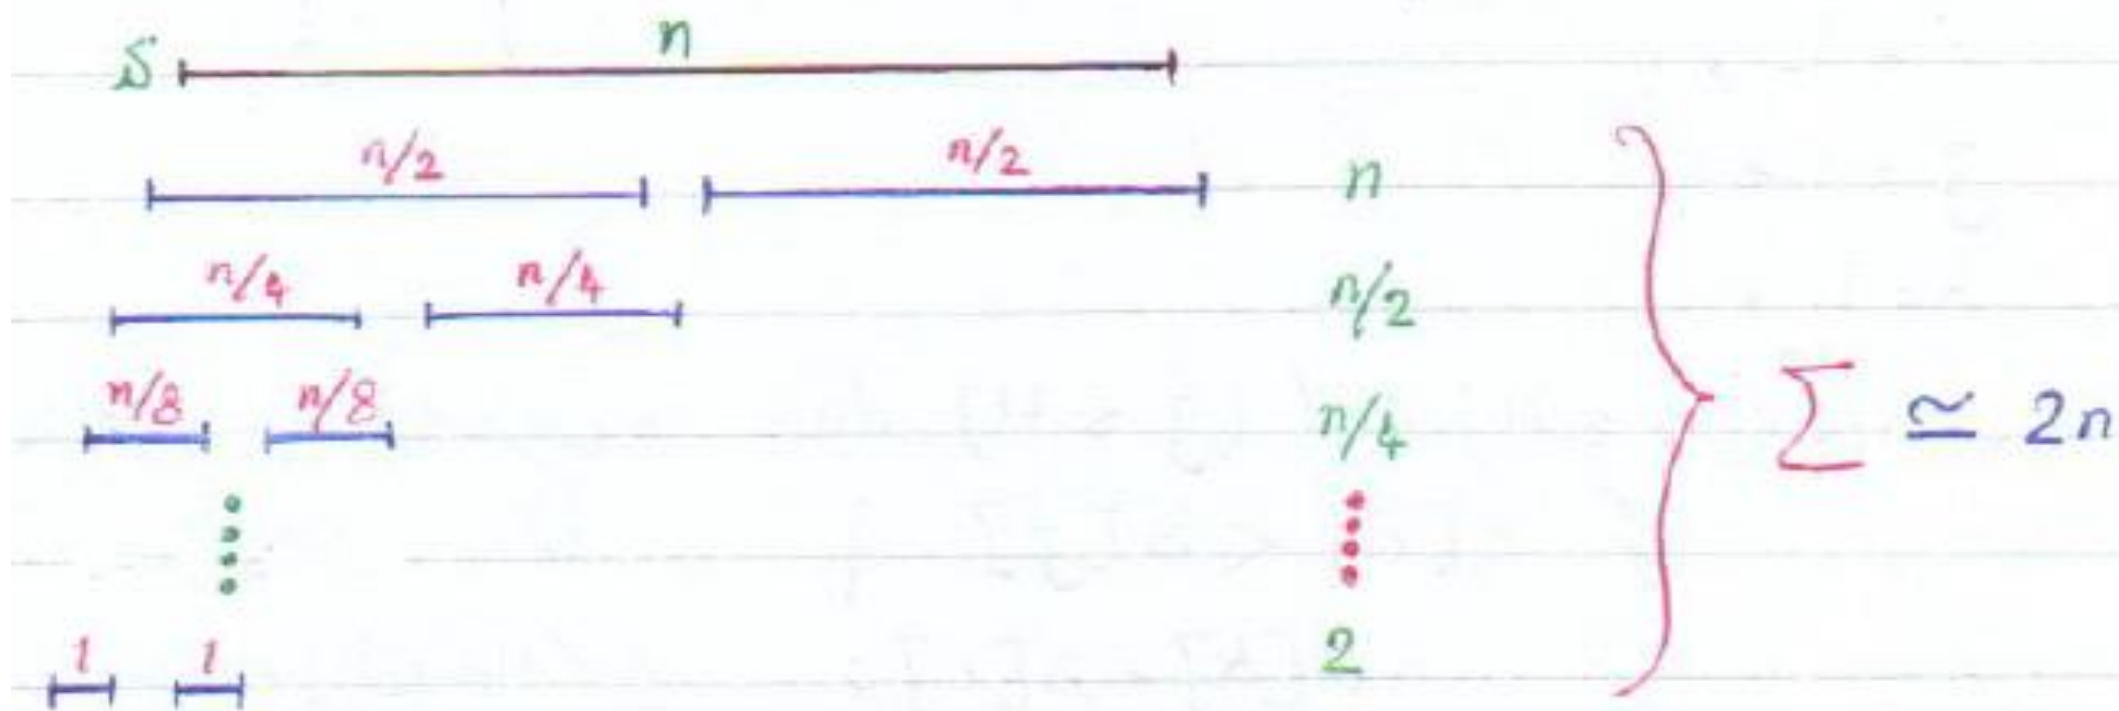 S n
n/2 n/2 n
n/4 n/4 n/2
n/8 n/8 n/4
∑ ≃ 2n
1 1 2